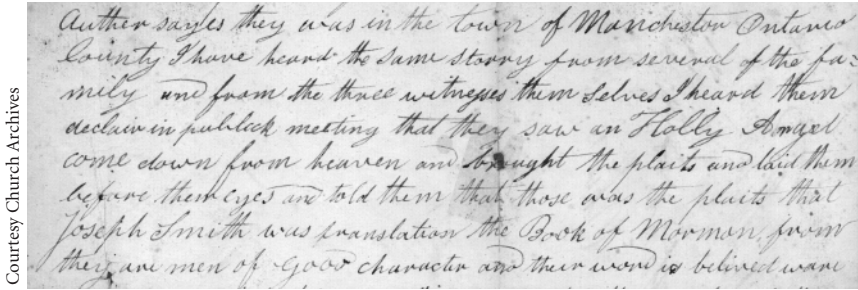 Courtesy Church Archives
Auther sayes they was in the town of Manchestor Ontario
County I have heard the same storry from several of the fa=
mily and from the three witnesses them selves I heard them
declair in publick meeting that they saw an Holly Angel
come down from heaven and brought the plaits and laid them
before them eyes and told them that those was the plaits that
Joseph Smith was translation the Book of Mormon, from
they are men of good character and their word is belived ware